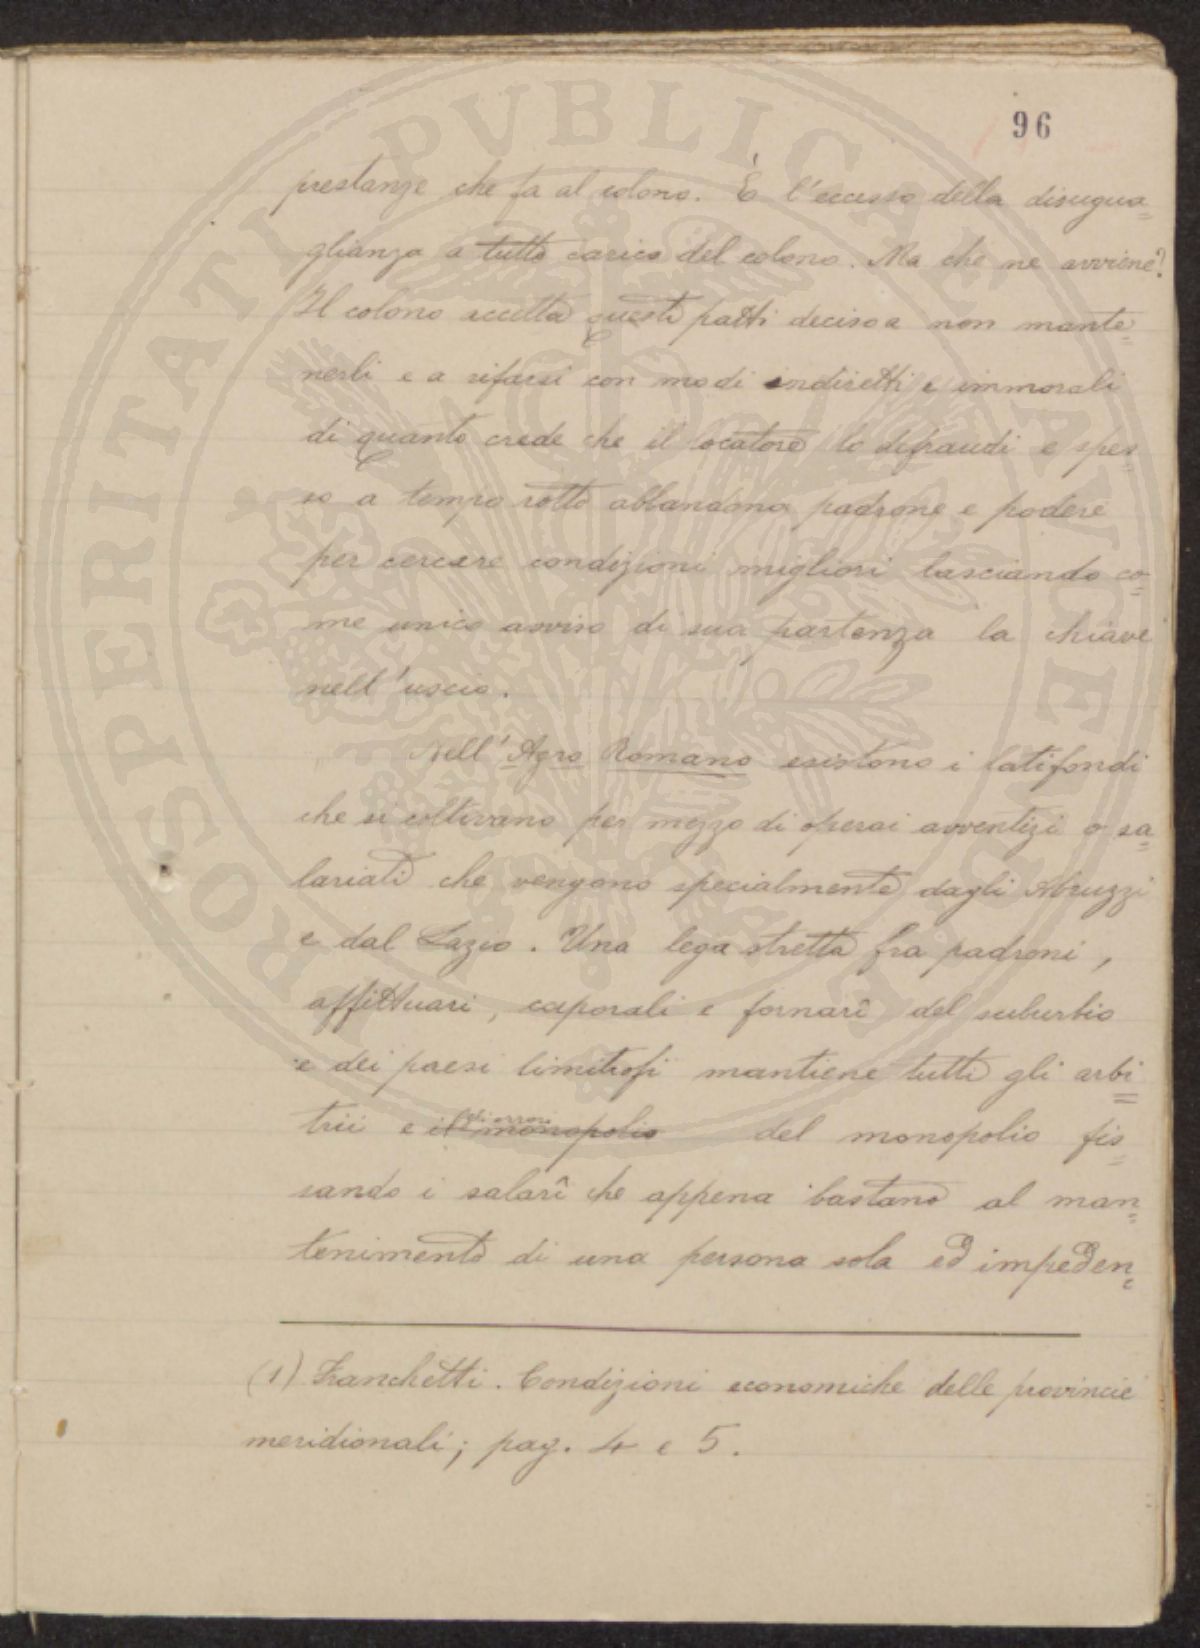 96
prestanze che fa al colono. È l'eccesso della disugua=
glianza a tutto carico del colono. Ma che ne avviene?
Il colono accetta questi patti deciso a non mante=
nerli e a rifarsi con modi indiretti e immorali
di quanto crede che il locatore lo defraudi e spes=
so a tempo rotto abbandona padrone e podere
per cercare condizioni migliori lasciando co=
me unico avviso di sua partenza la chiave
nell'uscio.
Nell'Agro Romano esistono i latifondi
che si coltivano per mezzo di operai avventizi o sa=
lariati che vengono specialmente dagli Abruzzi
e dal Lazio. Una lega stretta fra padroni,
affittuari, caporali e fornarî del suburbio
e dei paesi limitrofi mantiene tutti gli arbi=
gli orrori
trii e il monopolio del monopolio fis=
sando i salarî che appena bastano al man=
tenimento di una persona sola ed impeden=
(1) Franchetti. Condizioni economiche delle provincie
meridionali; pag. 4 e 5.
PROSPERITATI PVBLICAE AVGENDAE